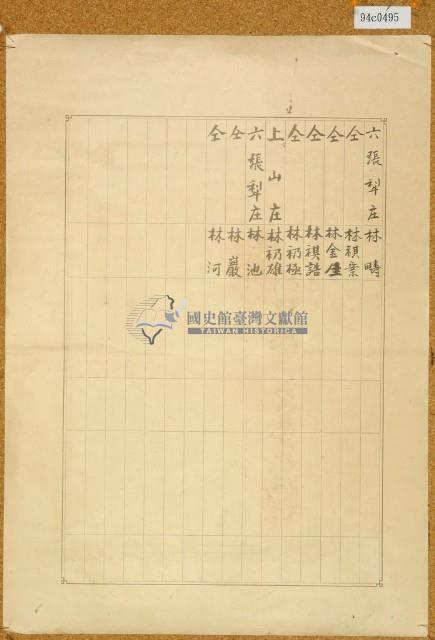 94c0495
六張犂庄 林疇
仝 林祺業
仝 林金生
仝 林祺諮
仝 林礽極
上山庄 林礽雄
六張犂庄 林池
仝 林巖
仝 林河
國史館臺灣文獻館
TAIWAN HISTORICA